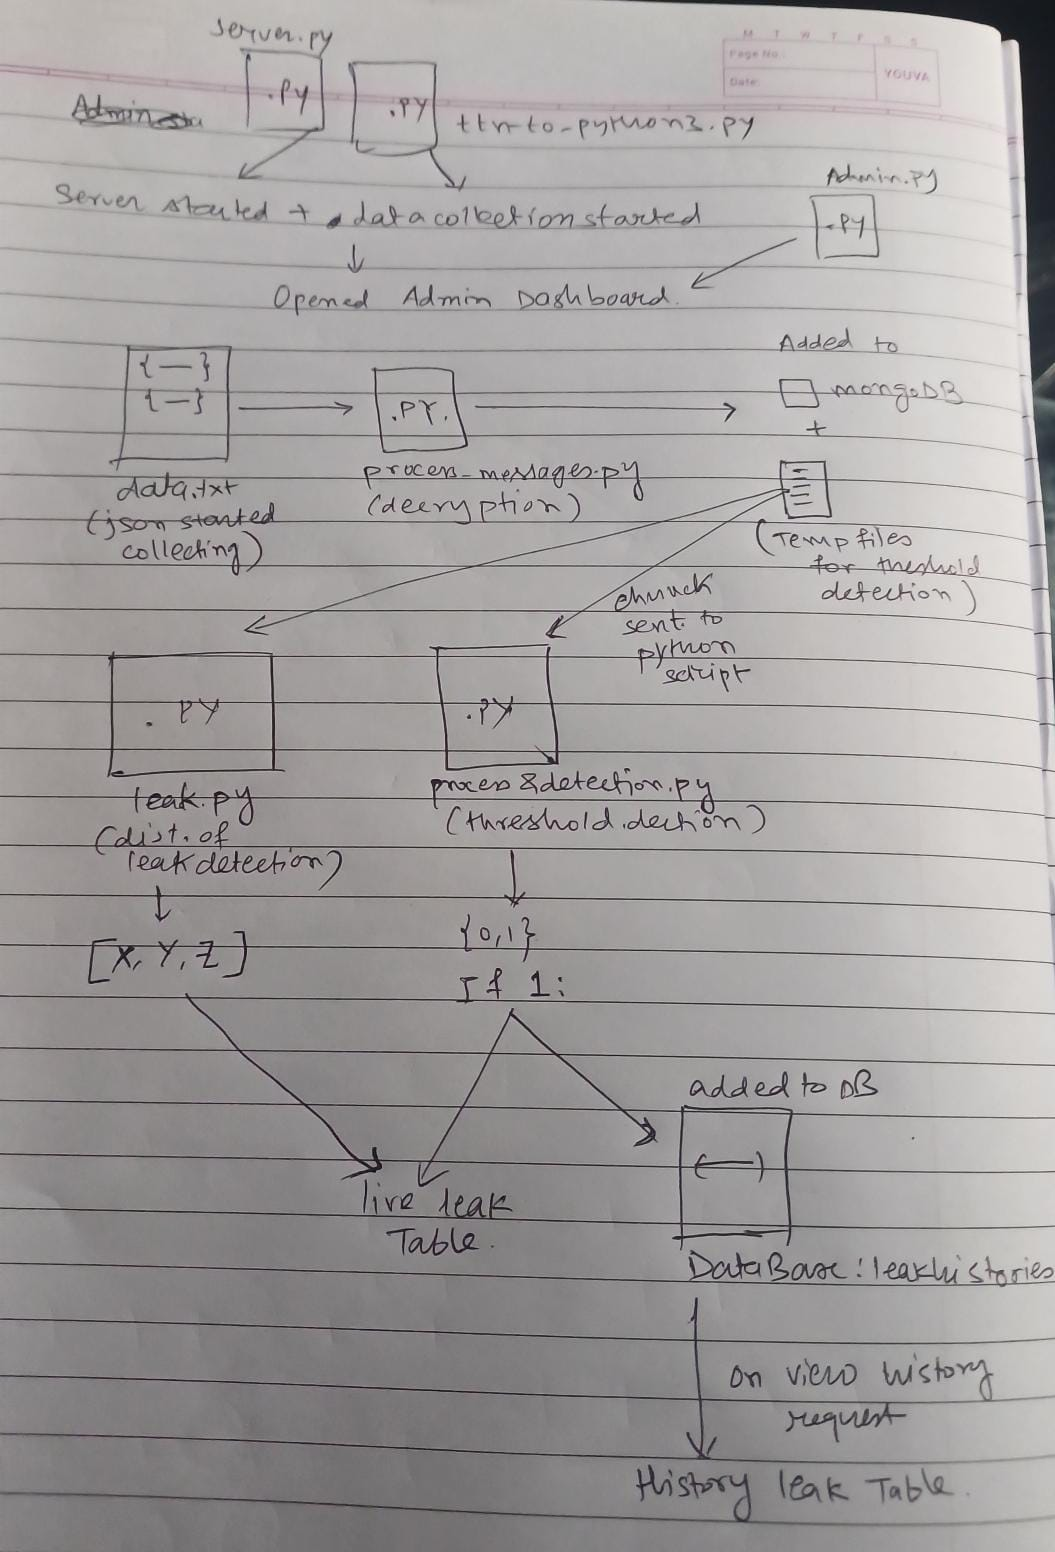 server.py
M T W T F S S
Page No.:
Date:
YOUVA
.PY
.PY
ttn-to-python3.py
Server started + data collection started
Admin.py
.PY
Opened Admin Dashboard.
{—}
{—}
data.txt
(json started
collecting)
.PY.
process-messages.py
(decryption)
Added to
mongoDB
+
(Temp files
for theshold
detection)
chunck
sent to
python
script
.PY
leak.py
(dist. of
leak detection)
[X, Y, Z]
.PY
process&detection.py
(threshold.dection)
{0,1}
If 1:
live leak
Table.
added to DB
DataBase: leakhistories
on view history
request
History leak Table.